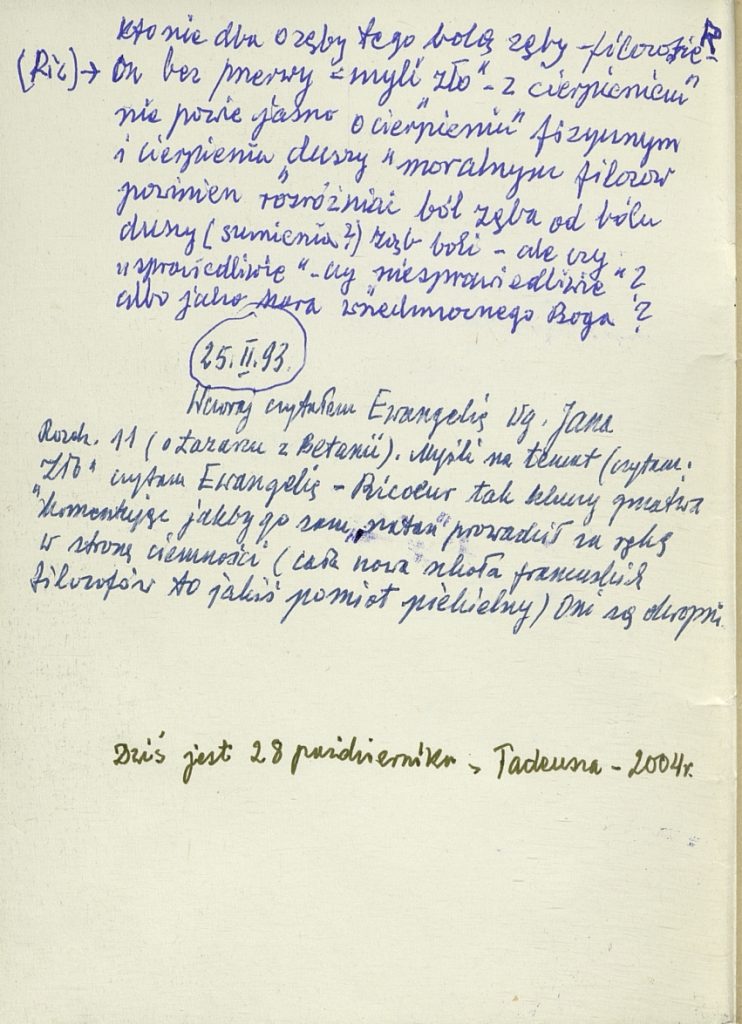 kto nie dba o zęby tego bolą zęby - filozofię - R
(Ric) → On bez przerwy "myli zło" - z cierpieniem"
nie powie jasno o "cierpieniu" fizycznym
i cierpieniu duszy "moralnym filozof
powinien "rozróżniać ból zęba od bólu
duszy (sumienia?) ząb boli - ale czy
"sprawiedliwie" - czy niesprawiedliwie"?
albo jako kara wszechmocnego Boga?
25.II.93.
Wczoraj czytałem Ewangelię wg. Jana
Rozdz. 11 (o Łazarzu z Betanii). Myśli na temat (czytam.
"Zło" czytam Ewangelię - Ricoeur tak kluczy gmatwa
komentując jakby go sam "szatan" prowadził za rękę
w stronę ciemności (cała nowa szkoła francuskich
filozofów to jakiś pomiot piekielny) Oni są okropni
Dziś jest 28 października, Tadeusza - 2004 r.